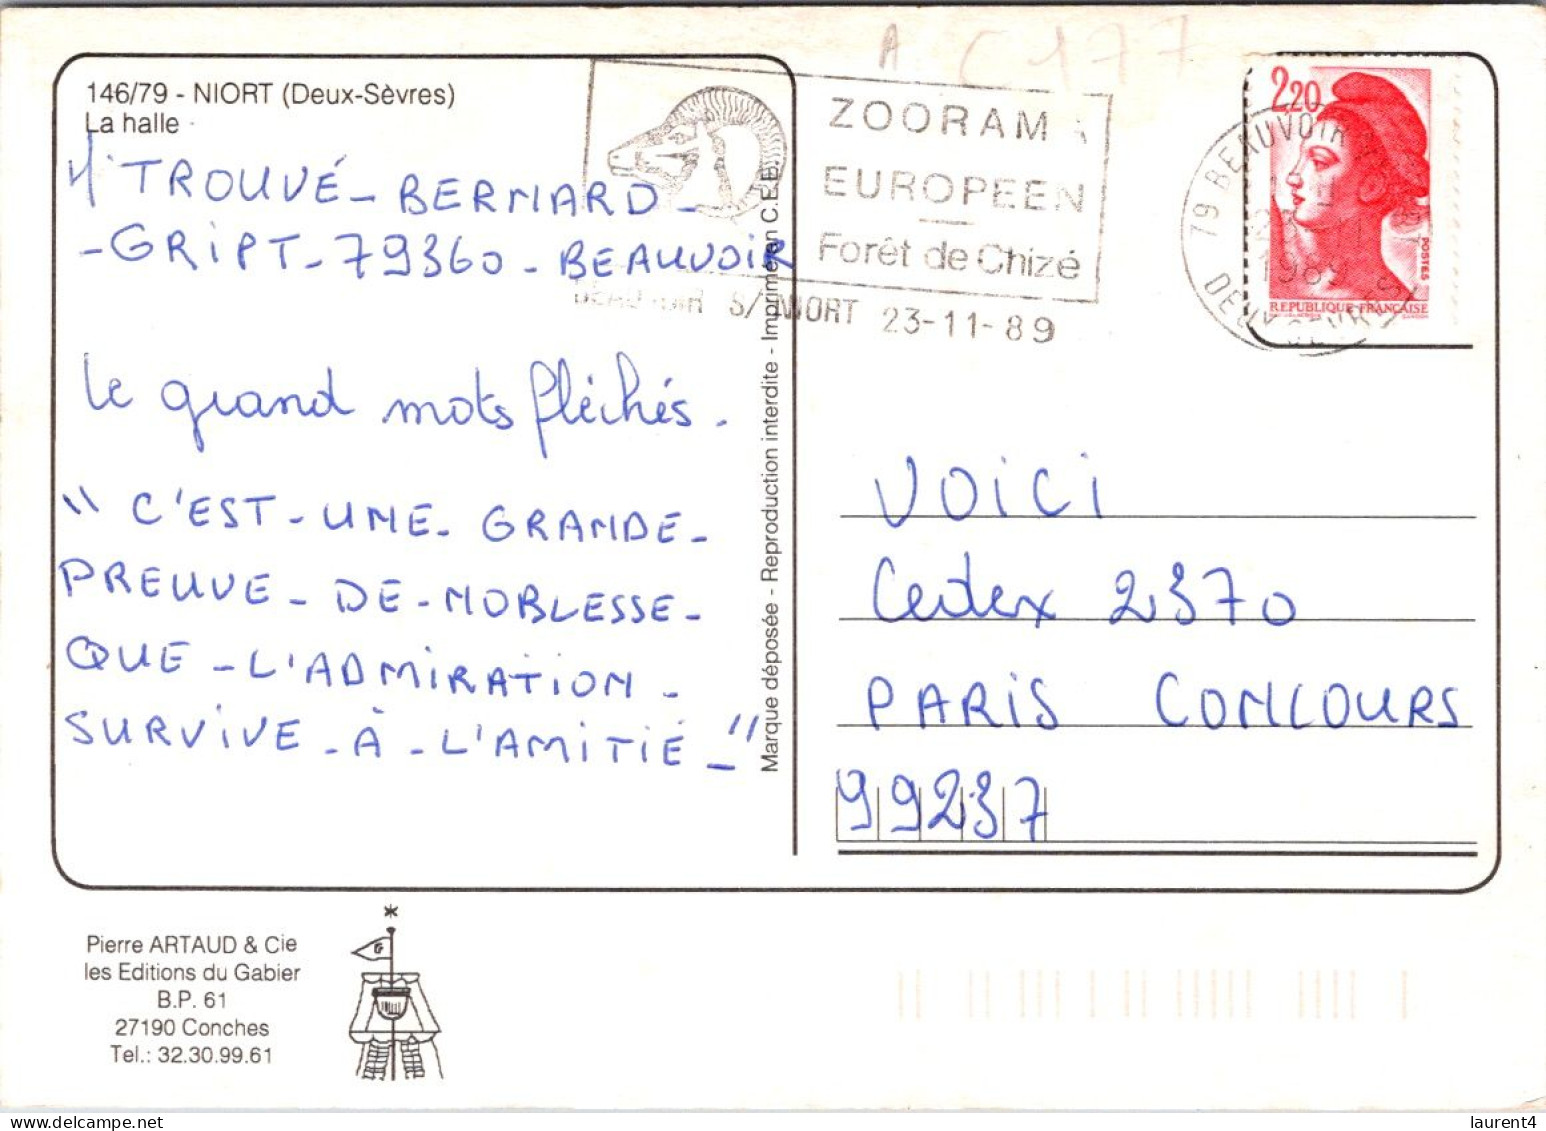 A C177
146/79 - NIORT (Deux-Sèvres)
La halle
Mr TROUVÉ - BERNARD -
- GRIPT - 79360 - BEAUVOIR
Le grand mots fléchés.
" C'EST - UNE - GRANDE -
PREUVE - DE - NOBLESSE -
QUE - L'ADMIRATION -
SURVIVE - À - L'AMITIÉ - "
Marque déposée - Reproduction interdite - Imprimé en C.E.E.
ZOORAMA
EUROPEEN
Forêt de Chizé
BEAUVOIR S/ NIORT 23-11-89
79 BEAUVOIR
23
1989
DEUX SEVRES
2,20
POSTES
REPUBLIQUE FRANÇAISE
VOICI
Cedex 2370
PARIS CONCOURS
99237
Pierre ARTAUD & Cie
les Editions du Gabier
B.P. 61
27190 Conches
Tel.: 32.30.99.61
laurent4